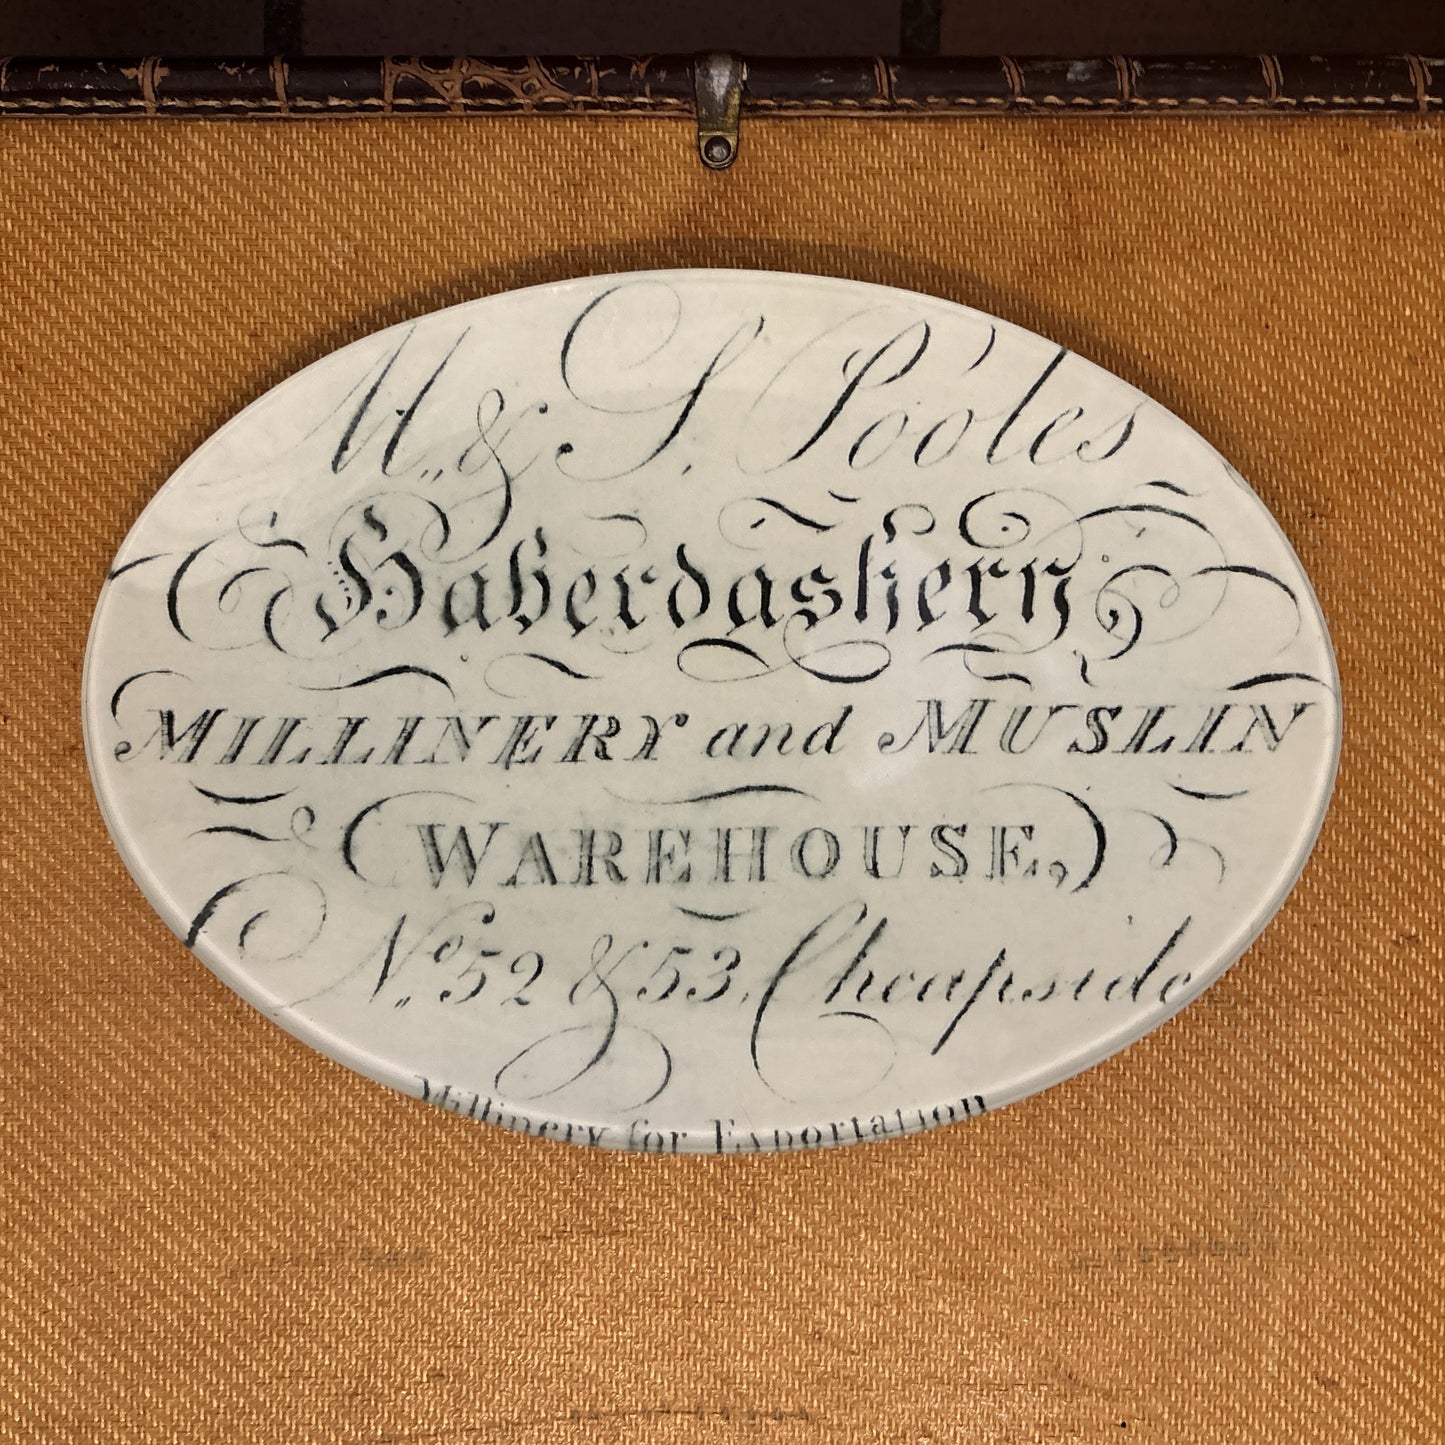 M. & S. Pooles
Haberdashery,
MILLINERY and MUSLIN
WAREHOUSE,
No. 52 & 53, Cheapside
Millinery for Exportation